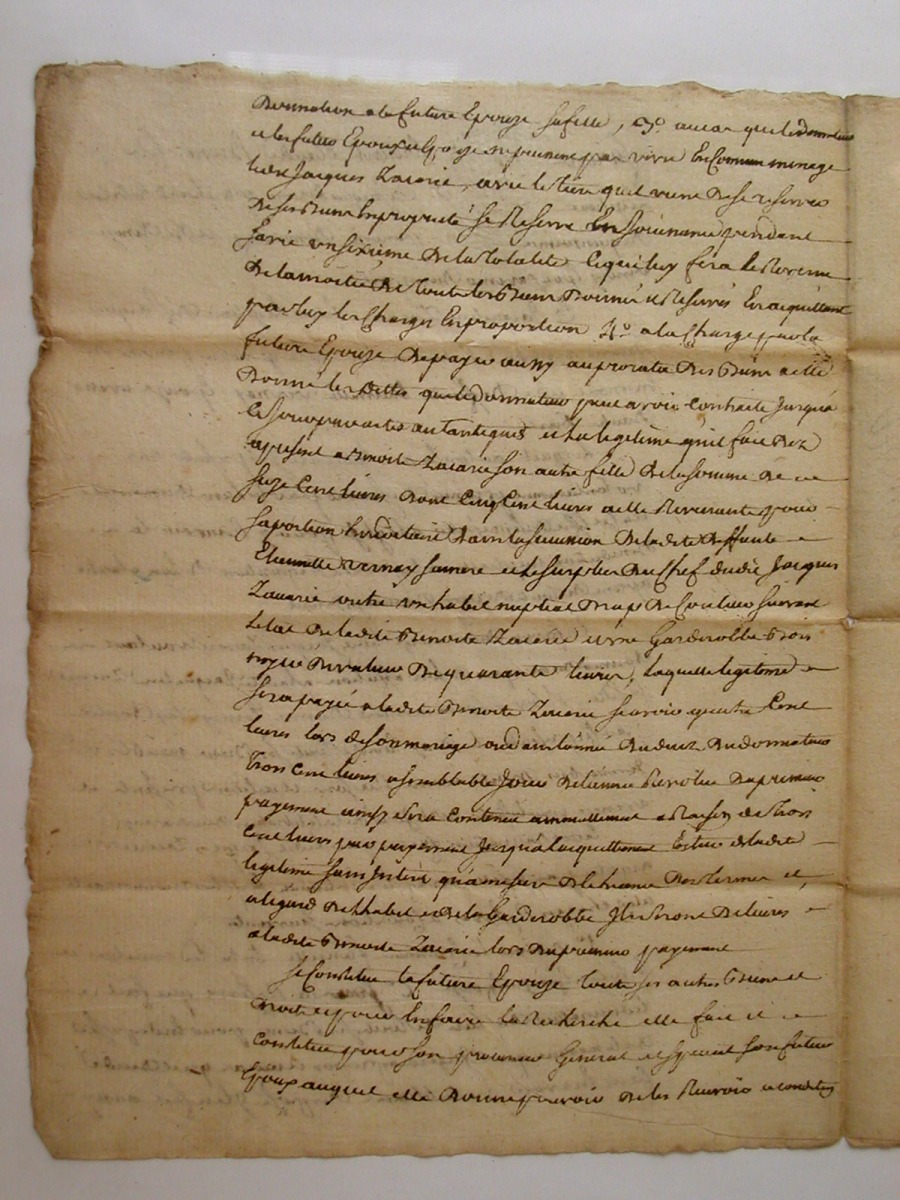 Donnation a la future Epouze sa fille, 3º au cas que le donnateur
et les futurs Epoux ne puissent pas vivre En Commun menage
ledit Jacques Zacarie, avec le tiers quil vient de se reserver
de ses Biens En proprieté se Reserve En Jouissance pendant
sa vie un sixieme de la totalité ce qui luy fera le Revenu
De la moitié De tout les Biens Donnés et Reservés En acquittant
par luy les Charges En proportion 4º a la Charge par la
future Epouze De payer aussy au prorata Des Biens a elle
Donné les Dettes que le donnateur peut avoir Contracté Jusqua
ce Jour par actes autantiques et la legitime quil fait Dez
apresent a Benoite Zacarie son autre fille De la somme De
seize Cent livres Dont Cinq Cent livres a elle Revenants pour
sa portion hereditaire Dans la succession De ladite Deffunte
Etiennette Vernay sa mere et le surplus Du Chef dudit Jacques
Zacarie outre un habit nuptial Drap De Couleur suivant
letat De ladite Benoite Zacarie et une Garderobbe Bois
noyer De valleur De quarante livres, laquelle legitime
sera payée a ladite Benoite Zacarie scavoir quatre Cent
livres lors de son mariage ou dans lannée Du decez Du donnateur
trois Cent livres a semblable Jour De lannée Revolue Du premier
payement ainsy sera Continué annuellement a Raison de trois
Cent livres par payement Jusqua lacquittement Entier de ladite
legitime sans Interet qua mesure De lecheance Des termes et
a legard De lhabit et de la Garderobbe Ils seront Delivrés
a ladite Benoite Zacarie lors Du premier payement
Se Constitue la future Epouze tout ses autres Biens et
Droits et pour En faire la Recherche elle fait et
Constitue pour son procureur General et special son futur
Epoux auquel elle Donne pouvoir De les Recevoir a conditions